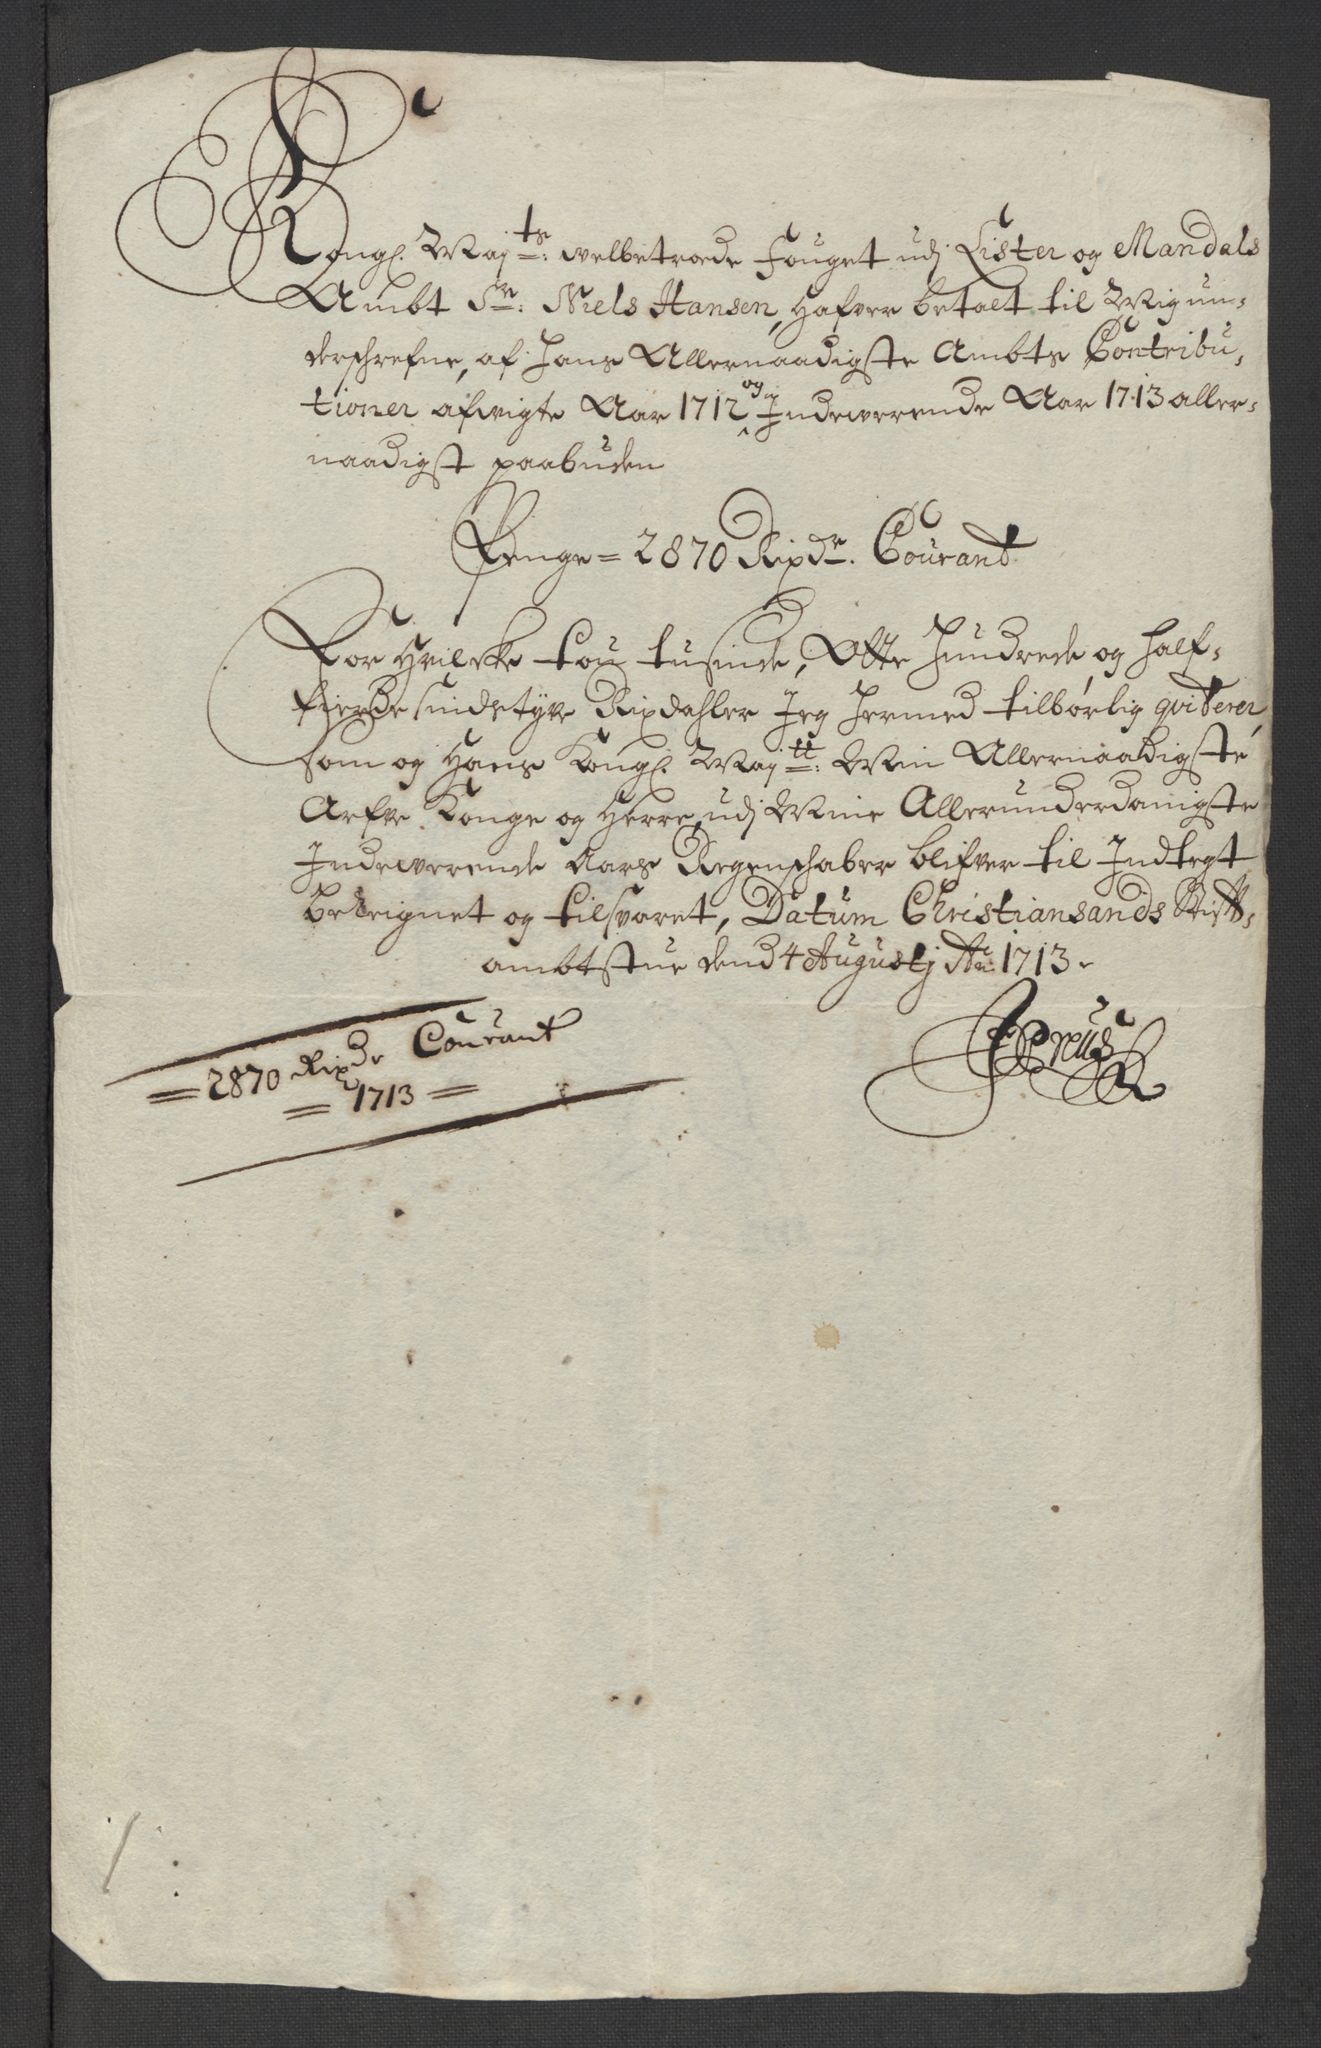 Kongl. Maj:ts velbetroede fouget udj Lister og Mandals
Ambt Sr. Niels Hansen, hafver betalt til Mig un-
derschrefne, af Hans Allernaadigste Ambts Contribu-
tioner afvigte Aar 1712 og Indeverende Aar 1713 aller-
naadigst paabuden
Penge = 2870 Rixdr. Courant
For Hvilcke tou tusinde, Otte Hundrede og half-
fierdesindstyve Rixdahler Jeg Hermed tilbørlig qviterer,
som og Hans Kongl. Maj:tt: Min Allernaadigste
Arfve Konge og Herre, udj Mine Allerunderdanigste
Indeverende Aars Regenschaber blifver til Indtegt
bereignet og tilsvaret, Datum Christiansands Stift-
ambtstue dend 4 Augustj Ao. 1713.
JPreus
= 2870 Rixdr Courant
= 1713 =